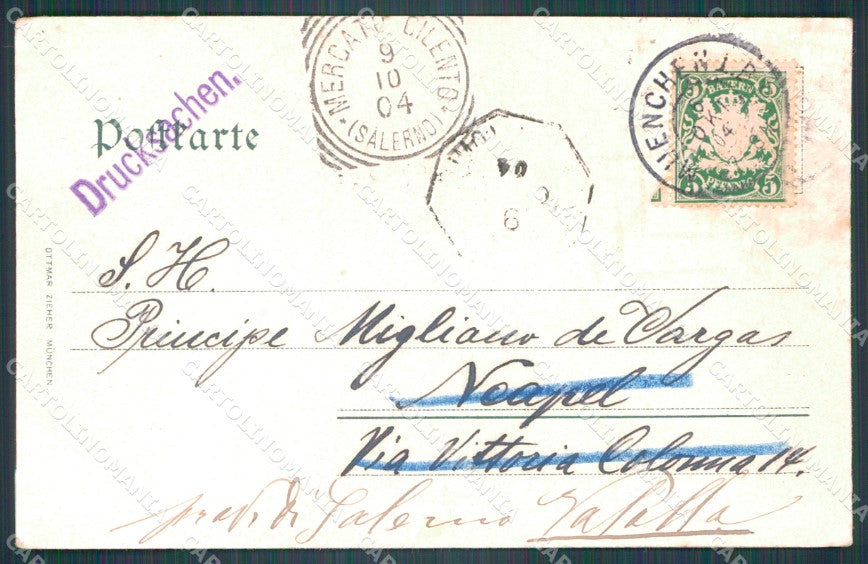 MERCATO CILENTO
9
10
04
(SALERNO)
MUENCHEN
04
BAYERN
5 5
5 PFENNIG 5
Postkarte
Drucksachen.
04
9
S. H.
Principe Migliano de Vargas
Neapel
Via Vittoria Colonna 14.
di Salerno Vatolla
OTTMAR ZIEHER MÜNCHEN
CARTOLINOMANIA